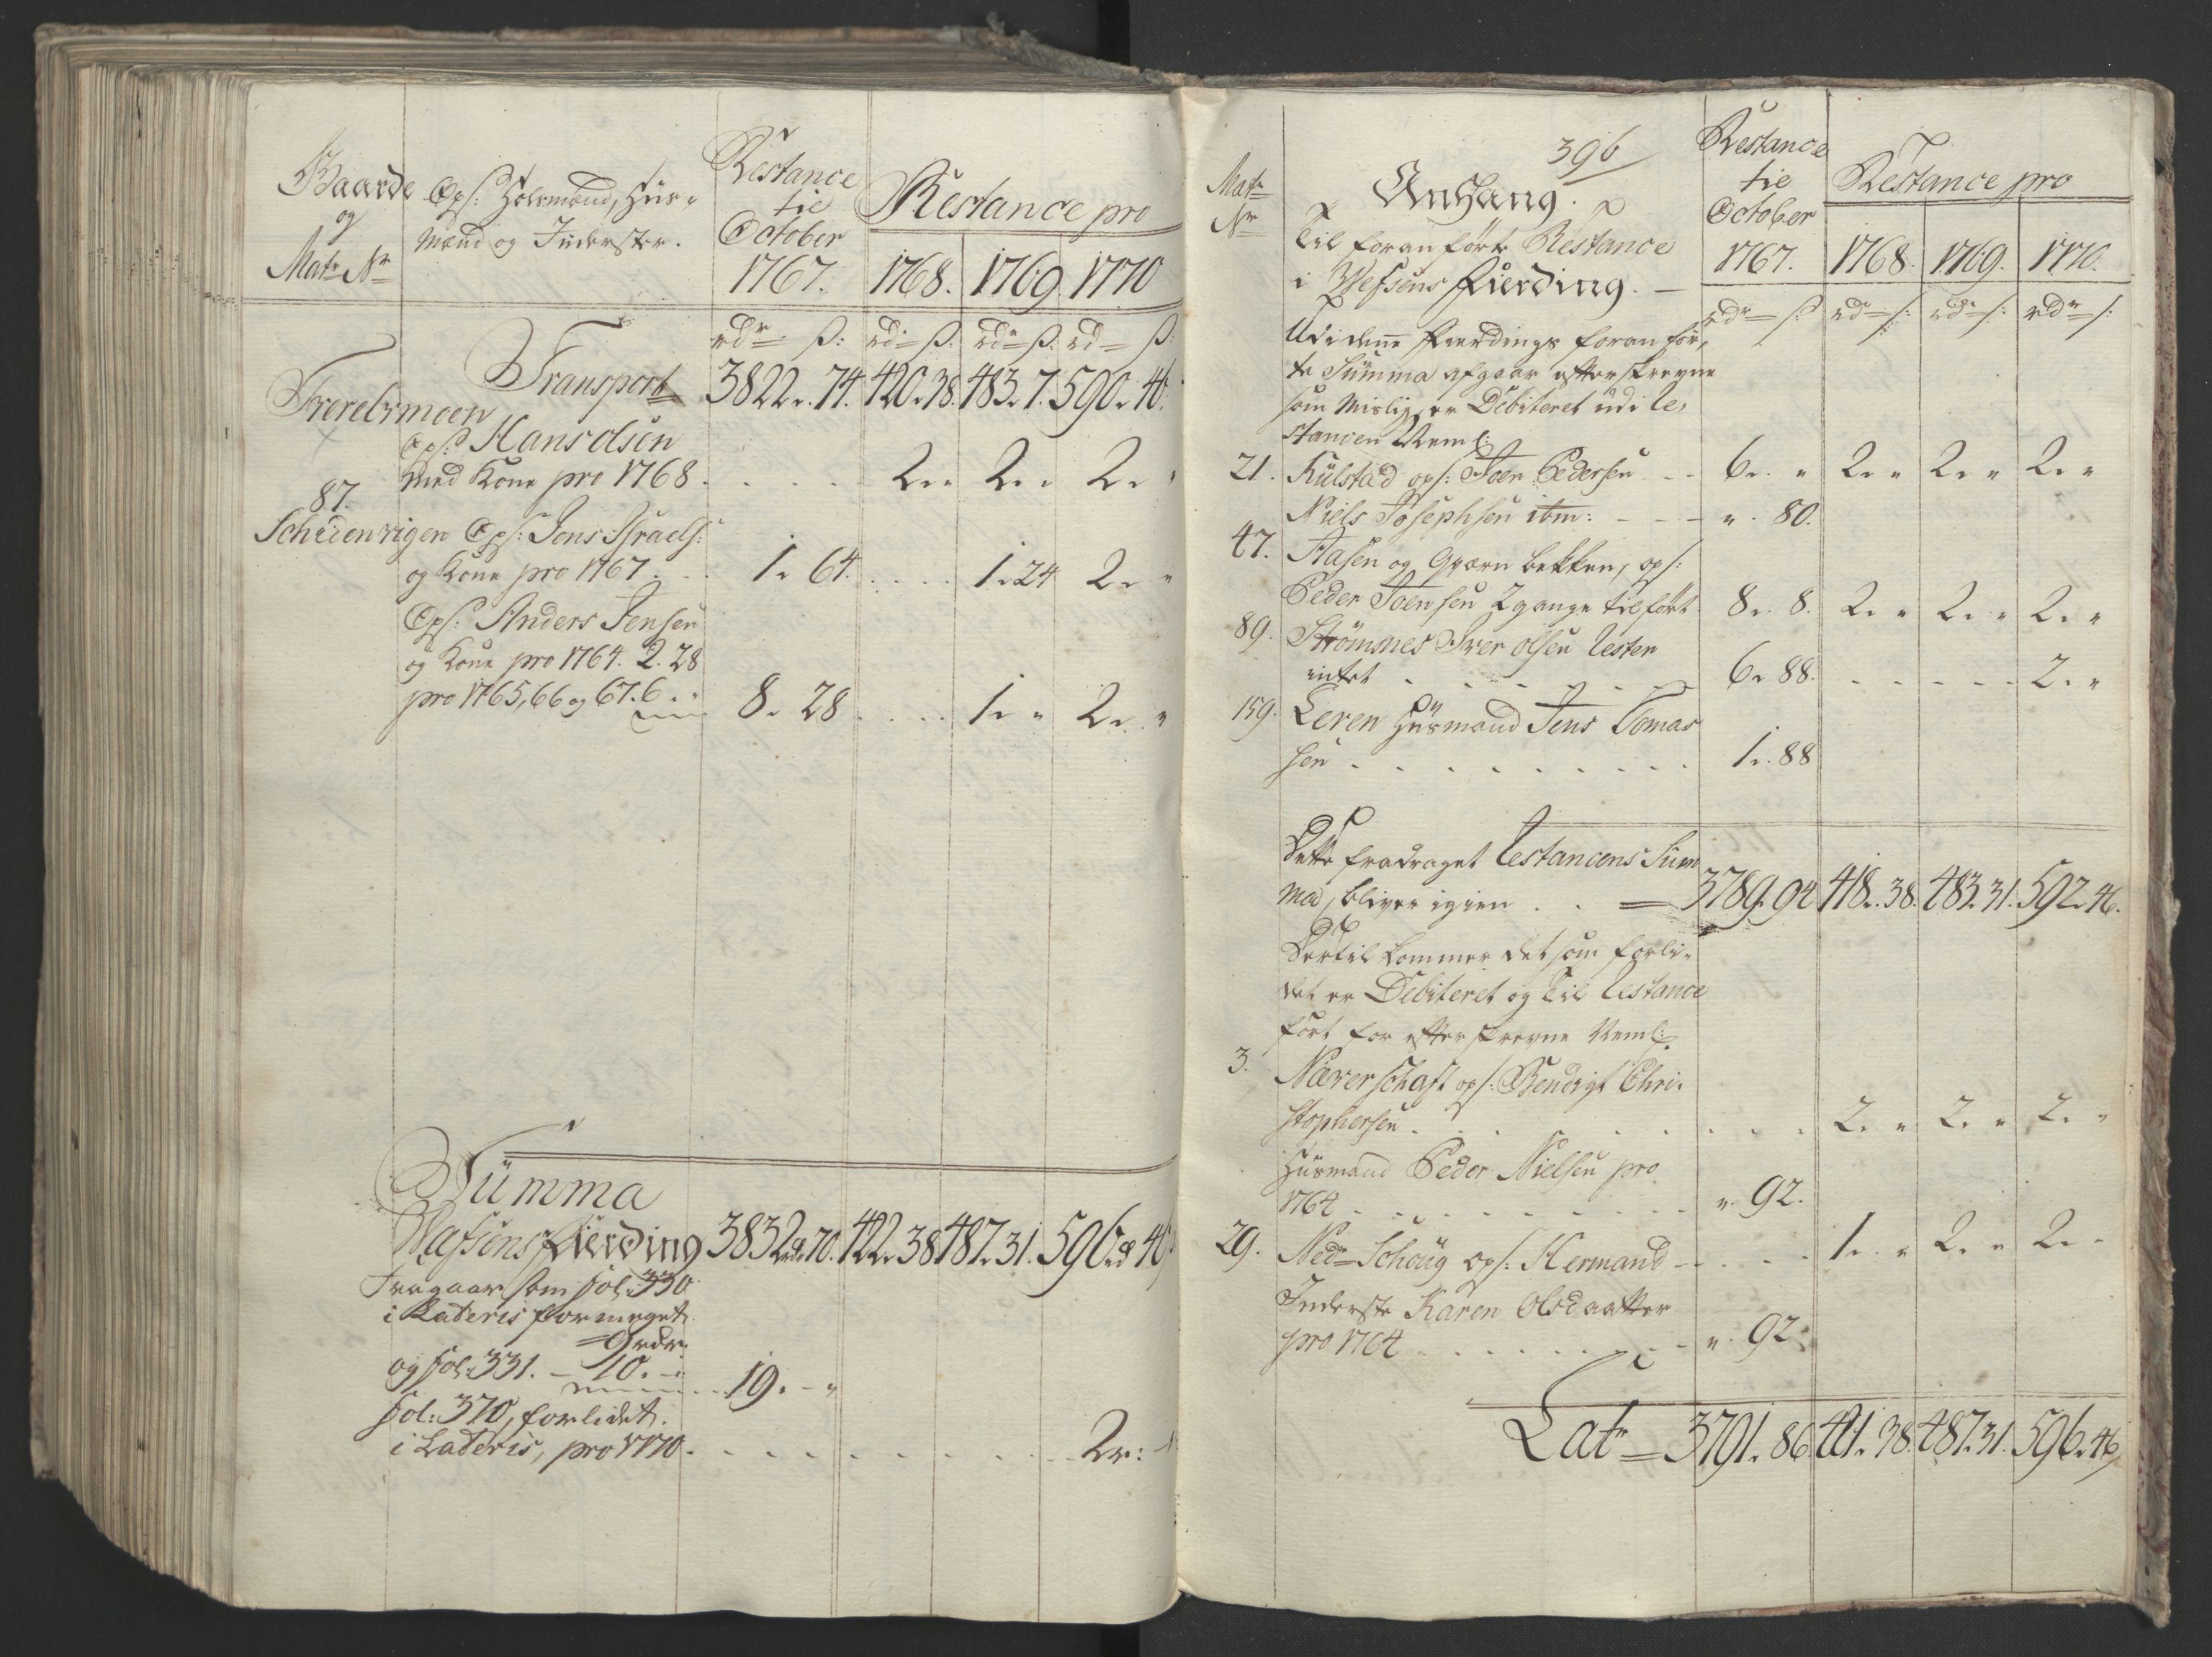 Gaarde
og
Matr. Nr.
Ops: Helsmænd, Huus-
mænd og Inderster.
Restance
til
October
1767.
Restance pro
1768. 1769. 1770
rdr ß: rd ß. rd ß. rd ß:
Transport 3822. 74. 420. 38. 483. 7. 590. 46.
Ops: Hans Olsen
med Kone pro 1768. . . . . . 2. " 2. " 2. "
87.
Ops: Jens Israels:
og Kone pro 1767. . . 1. 64. . . . . 1. 24 2. "
Ops: Anders Jensen
og Kone pro 1764. 2. 28
pro 1765, 66 og 67. 6. " 8. 28 . . . . 1. " 2. "
Summa
Wefsens Fierding 3832. 70. 422. 38. 487. 31. 596. 46
Fragaar som fol: 330
i Lateris for meget
9 rdr.
og fol: 331. – 10. – . . 19. – "
fol: 370, forlidet
i Lateris, pro 1770. . . . . . . . . . 2r: "
396
Matr.
Nr.
Anhang.
Til foranførte Restance
i Wefsens Fierding. –
Restance
til
October
1767.
Restance pro
1768. 1769. 1770.
rdr ß: rdr ß: rdr ß: rdr ß:
Udi denne Fierdings foranfør-
te Summa afgaar efterskrevne
som Mislig er Debiteret udi Re-
stancen Neml:
21. Kulstad ops: Joen Pedersen – – 6. " 2. " 2. " 2. "
Niels Josephsen itm: – – – ". 80.
47. Aasen og Qværnbekken, ops:
Peder Joensen 2 gange tilført 8. 8. 2. " 2. " 2. "
89. Strömsnes Iver Olsen Rester
intet . . . . . . 6. 88. . . . . . 2. "
159. Leren Huusmand Jens Tomas
sen . . . . . . . . . 1. 88
Dette fradraget Restancens Sum
ma, bliver igien . . = 3789. 94 418. 38. 483. 31. 592. 46.
Dertil kommer det som forli-
det er Debiteret og til Restance
ført for efterskrevne Neml:
3. Ops: Bendigt Chri-
stophersen . . . . . . . . 2. " 2. " 2. "
Huusmand Peder Nielsen pro
1764 . . . . . . . . . ". 92.
29. Nedr Schoug ops: Hermand – . . . . 1. " 2. " 2. "
Inderste Karen Olsdaatter
pro 1764 . . . . . . . ". 92.
Latr = 3791. 86. 421. 38. 487. 31. 596. 46